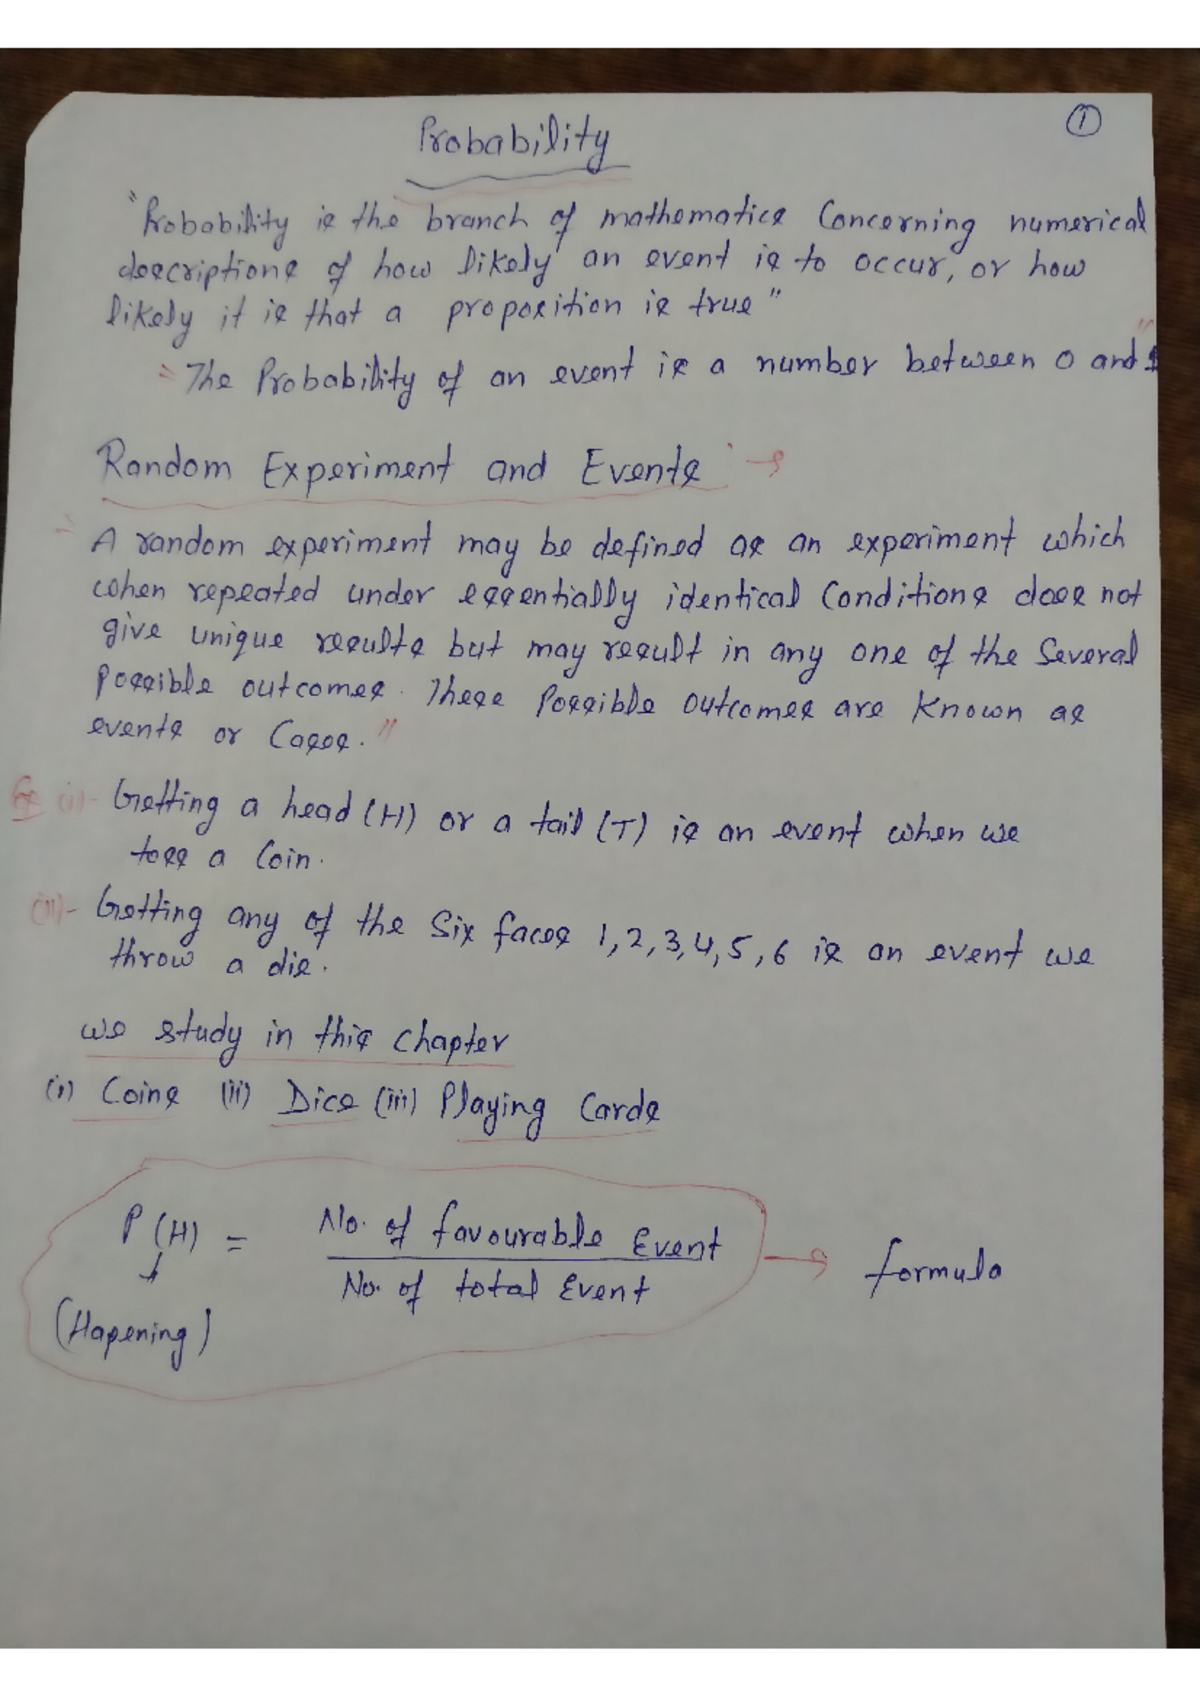 ①
Probability
"Probability is the branch of mathematics Concerning numerical
descriptions of how likely an event is to occur, or how
likely it is that a proposition is true"
"The Probability of an event is a number between 0 and 1"
Random Experiment and Events →
"A random experiment may be defined as an experiment which
when repeated under essentially identical Conditions does not
give unique results but may result in any one of the Several
possible outcomes. These Possible outcomes are Known as
events or Cases."
Ex (i)- Getting a head (H) or a tail (T) is an event when we
toss a Coin.
(ii)- Getting any of the Six faces 1,2,3,4,5,6 is an event we
throw a die.
we study in this chapter
(i) Coins (ii) Dice (iii) Playing Cards
P(H) = No. of favourable Event / No. of total Event → formula
↓
(Hapening)